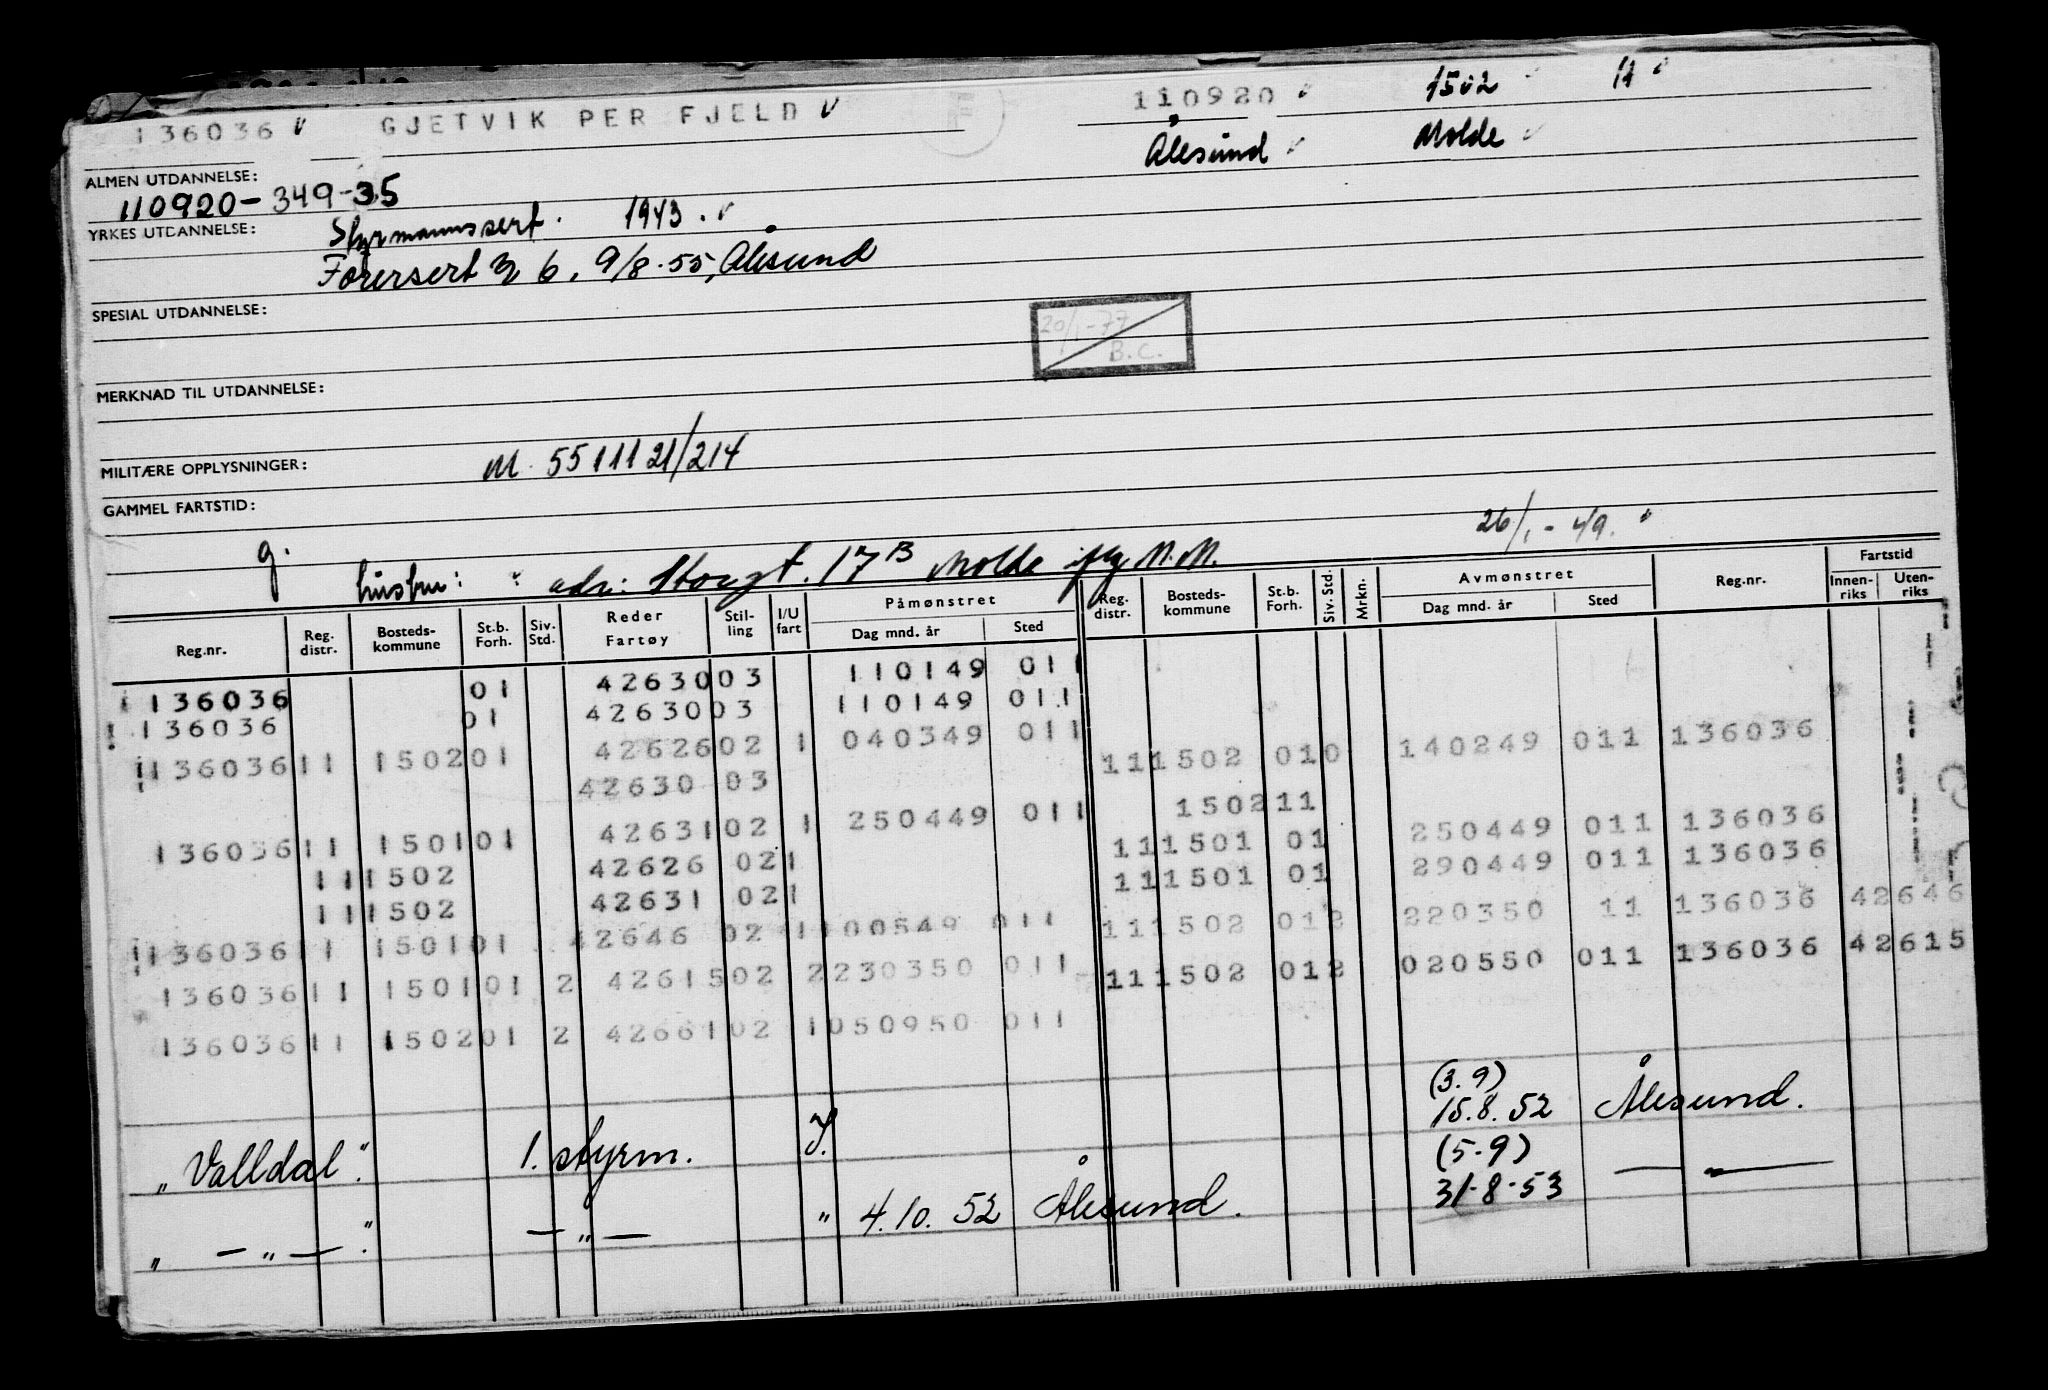 136036 GJETVIK PER FJELD 110920 1502 11
Ålesund Molde
ALMEN UTDANNELSE:
110920-349-35
YRKES UTDANNELSE: Styrmannssert. 1943.
Førersert 6. 9/8.55, Ålesund
SPESIAL UTDANNELSE:
20/1-77
B.C.
MERKNAD TIL UTDANNELSE:
MILITÆRE OPPLYSNINGER: M. 5511121/214
GAMMEL FARTSTID:
g. 26/1-49.
hustru: adr: Storgt. 17B Molde
Reg.nr. Reg. distr. Bosteds-kommune St.b. Forh. Siv. Std. Reder Fartøy Stil-ling I/U fart Påmønstret Dag mnd. år Sted Reg. distr. Bosteds-kommune St.b. Forh. Siv. Std. Mrkn. Avmønstret Dag mnd. år Sted Reg.nr. Fartstid Innen-riks Uten-riks
136036 01 4263003 110149 011
136036 01 4263003 110149 011
136036 11 1502 01 4262602 1 040349 011 111502 010 140249 011 136036
42630 03 150211
136036 11 1501 01 4263102 1 250449 011 111501 01 250449 011 136036
111502 42626 021 111501 01 290449 011 136036
111502 42631 021
136036 11 1501 01 42646 02 1100549 011 111502 012 220350 11 136036 42646
136036 11 1501 01 2 4261502 2230350 011 111502 012 020550 011 136036 42615
136036 11 1502 01 2 4266102 1050950 011
(3.9)
"Valldal". 1. styrm. I. 15.8.52 Ålesund.
(5-9)
" — " — ". — " — " 4.10.52 Ålesund. 31-8-53 — " —